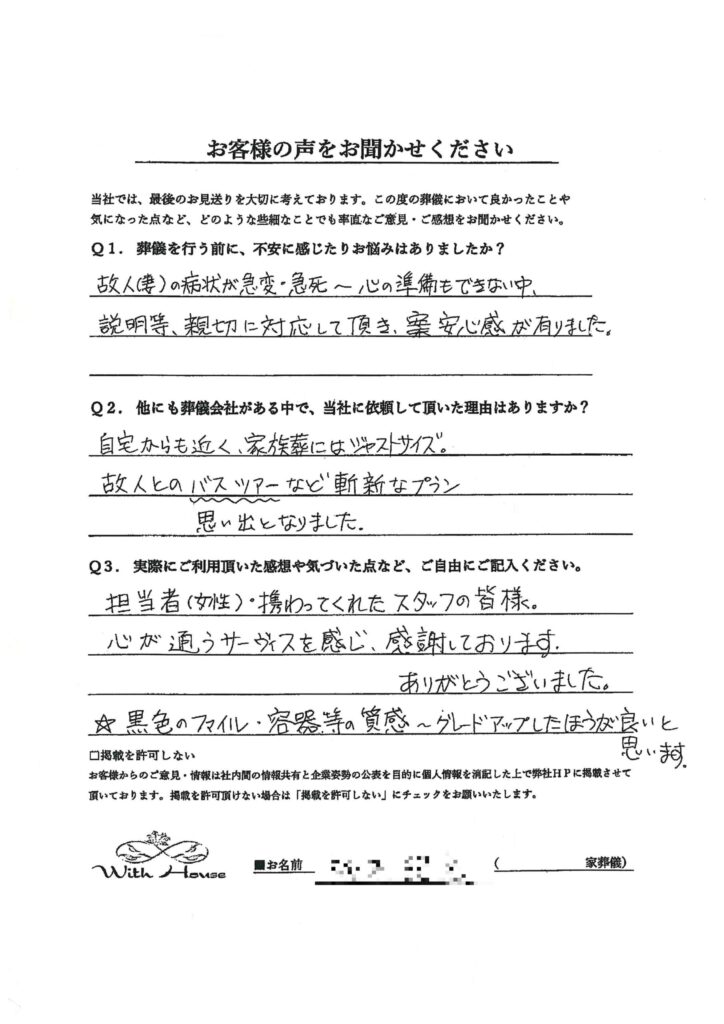 お客様の声をお聞かせください
当社では、最後のお見送りを大切に考えております。この度の葬儀において良かったことや
気になった点など、どのような些細なことでも率直なご意見・ご感想をお聞かせください。
Q1．葬儀を行う前に、不安に感じたりお悩みはありましたか？
故人(妻)の病状が急変・急死～心の準備もできない中、
説明等、親切に対応して頂き、安心感が有りました。
Q2．他にも葬儀会社がある中で、当社に依頼して頂いた理由はありますか？
自宅からも近く、家族葬にはジャストサイズ。
故人とのバスツアーなど斬新なプラン
思い出となりました.
Q3．実際にご利用頂いた感想や気づいた点など、ご自由にご記入ください。
担当者(女性)・携わってくれたスタッフの皆様。
心が通うサーヴィスを感じ、感謝しております.
ありがとうございました。
☆黒色のファイル・容器等の質感～グレードアップしたほうが良いと
思います。
□掲載を許可しない
お客様からのご意見・情報は社内間の情報共有と企業姿勢の公表を目的に個人情報を消記した上で弊社HPに掲載させて
頂いております。掲載を許可頂けない場合は「掲載を許可しない」にチェックをお願いいたします。
With House
■お名前 （ 家葬儀）